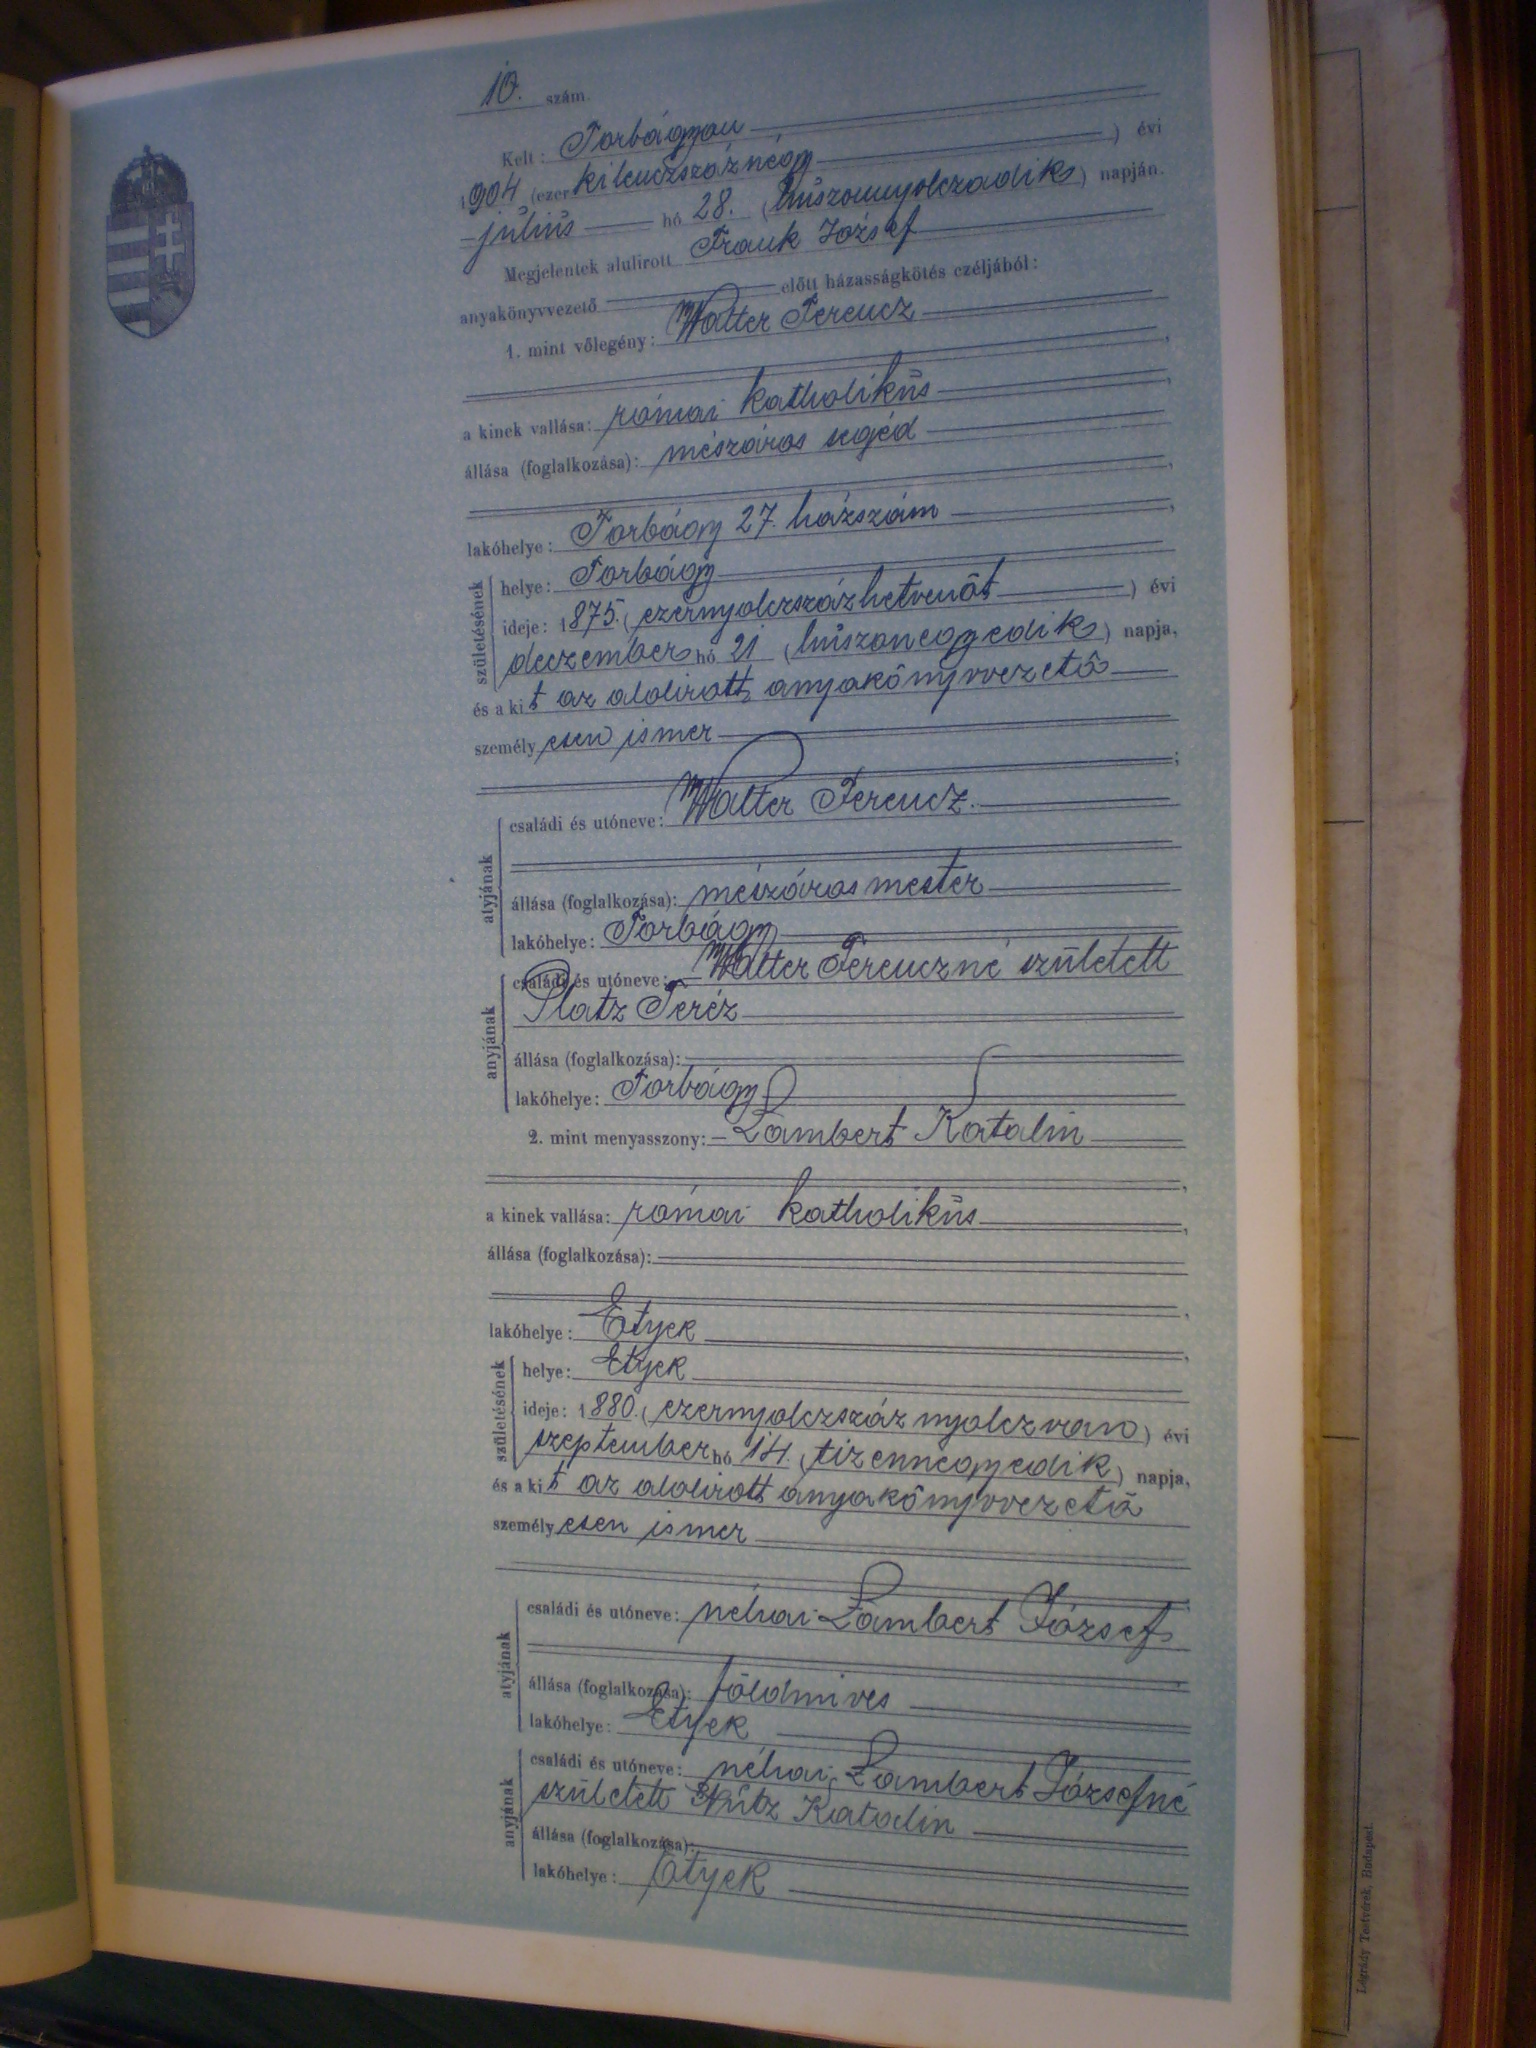 10. szám.
Kelt: Torbágyon
1904 (ezerkilenczszáznégy) évi
július hó 28. (huszonnyolczadik) napján.
Megjelentek alulírott Frank József
anyakönyvvezető előtt házasságkötés czéljából:
1. mint vőlegény: Walter Ferencz
a kinek vallása: római katholikus
állása (foglalkozása): mészáros segéd
lakóhelye: Torbágy 27. házszám
születésének
helye: Torbágy
ideje: 1875. (ezernyolczszázhetvenöt) évi
deczember hó 21 (huszonegyedik) napja,
és a kit az alolirott anyakönyvvezető
személyesen ismer
atyjának
családi és utóneve: Walter Ferencz.
állása (foglalkozása): mészáros mester
lakóhelye: Torbágy
anyjának
családi és utóneve: Walter Ferenczné született
Platz Teréz
állása (foglalkozása):
lakóhelye: Torbágy
2. mint menyasszony: Lambert Katalin
a kinek vallása: római katholikus
állása (foglalkozása):
lakóhelye: Etyek
születésének
helye: Etyek
ideje: 1880. (ezernyolczszáznyolczvan) évi
szeptember hó 14. (tizennegyedik) napja,
és a kit az alolirott anyakönyvvezető
személyesen ismer
atyjának
családi és utóneve: néhai Lambert József
állása (foglalkozása): földmives
lakóhelye: Etyek
anyjának
családi és utóneve: néhai Lambert Józsefné
született Katalin
állása (foglalkozása):
lakóhelye: Etyek
Légrády Testvérek, Budapest.